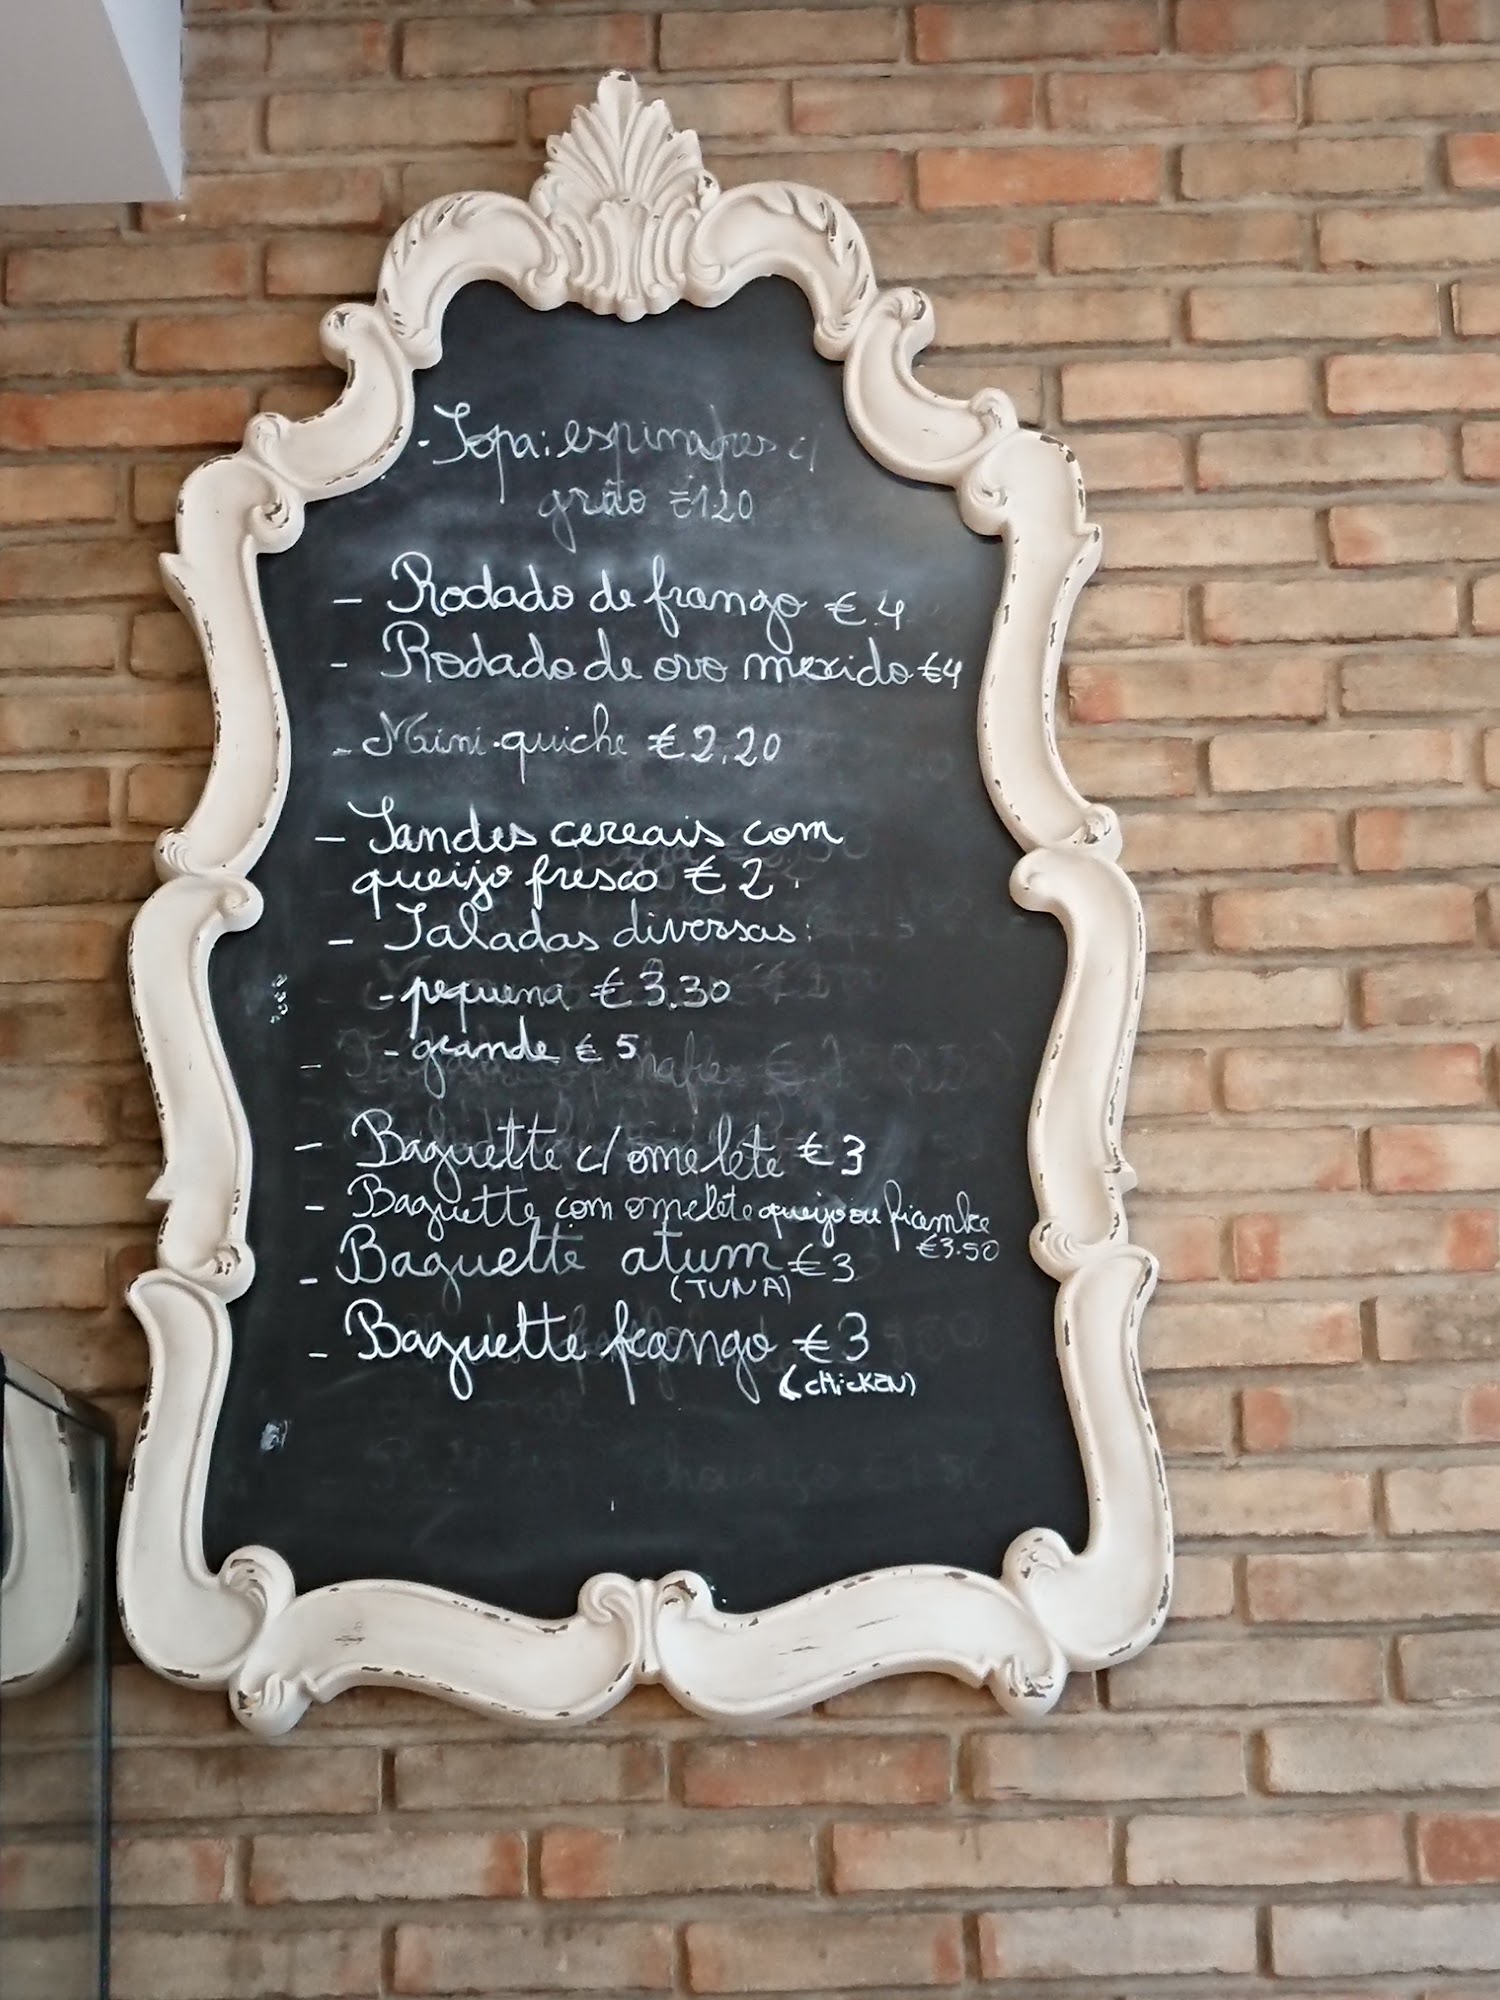 - Sopa: espinafres c/
grão €1.20
- Rodado de frango €4
- Rodado de ovo mexido €4
- Mini-quiche €2,20
- Sandes cereais com
queijo fresco €2
- Saladas diversas:
- pequena €3.30
- grande €5
-
- Baguette c/ omelete €3
- Baguette com omelete queijo ou fiambre
€3.50
- Baguette atum €3
(TUNA)
- Baguette frango €3
(CHICKEN)